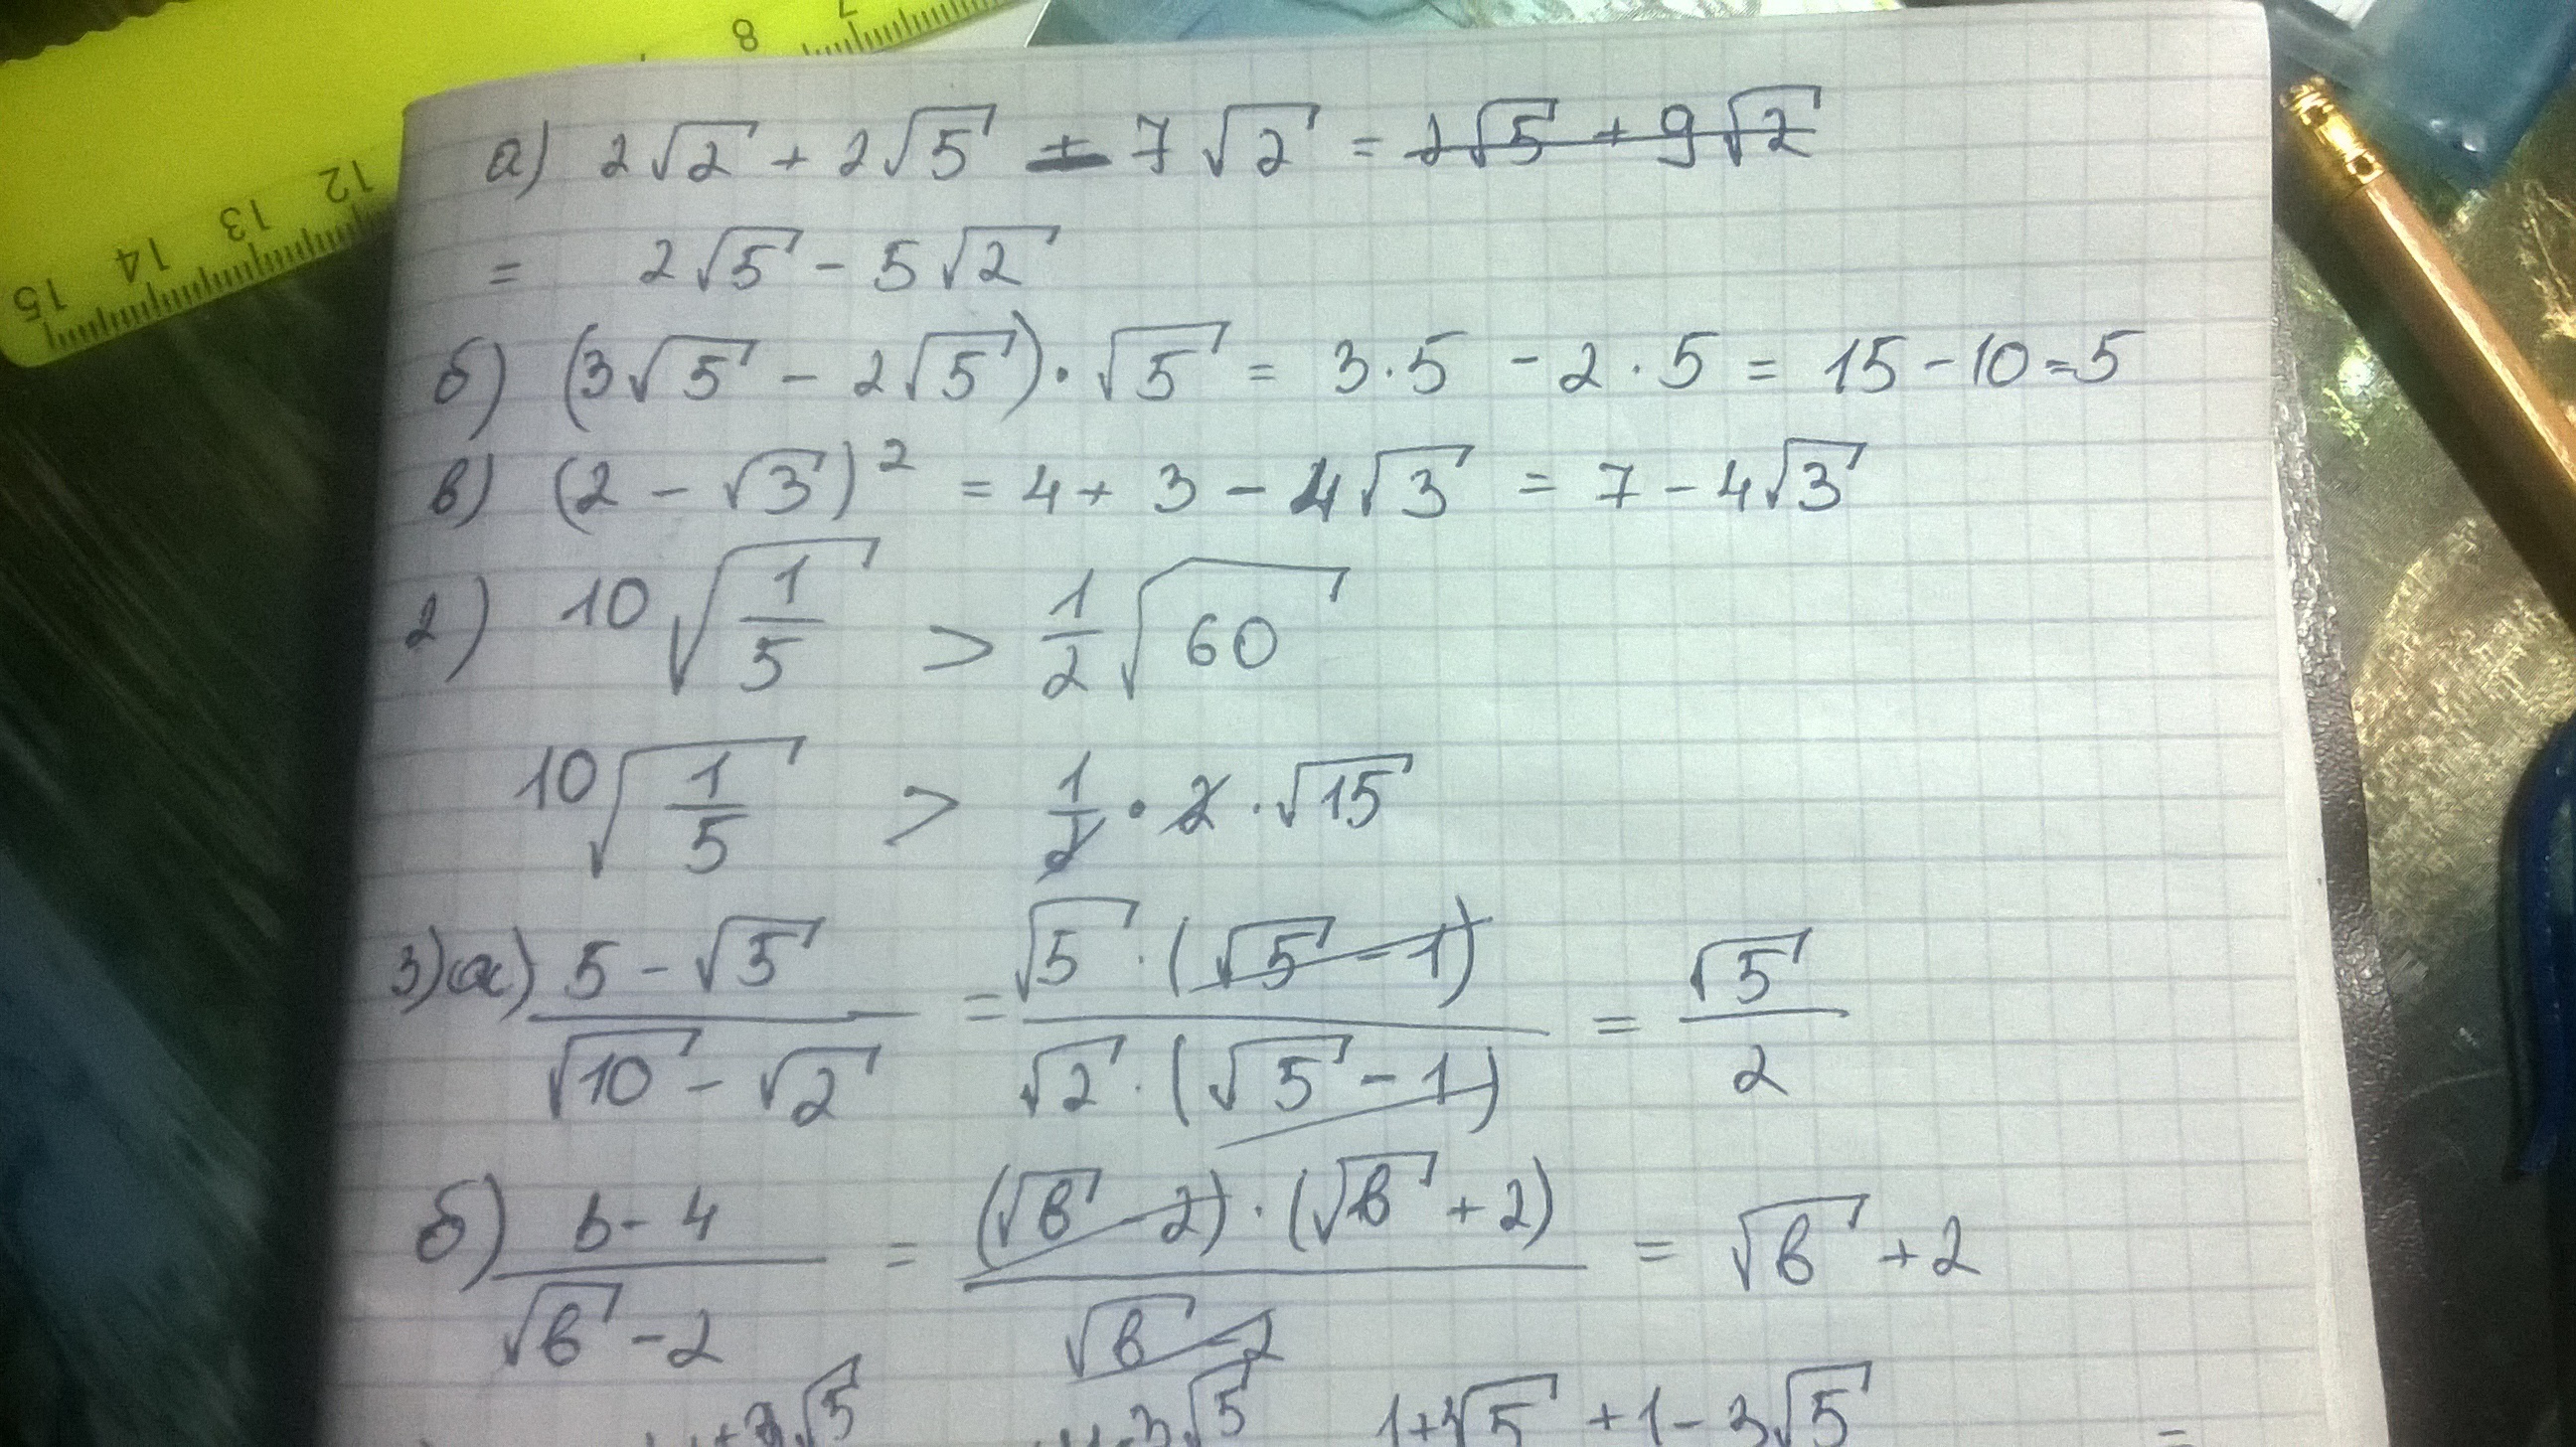 7 8
12 13 14 15
а) 2√2 + 2√5 - 7√2 = 2√5 + 9√2
= 2√5 - 5√2
б) (3√5 - 2√5) · √5 = 3·5 - 2·5 = 15 - 10 = 5
в) (2 - √3)² = 4 + 3 - 4√3 = 7 - 4√3
2) 10√(1/5) > 1/2 √60
10√(1/5) > 1/2 · 2 · √15
3) а) (5 - √5)/(√10 - √2) = (√5 · (√5 - 1))/(√2 · (√5 - 1)) = √5/2
б) (b - 4)/(√b - 2) = ((√b - 2) · (√b + 2))/(√b - 2) = √b + 2
+3√5 -3√5 1+3√5 + 1 - 3√5 =